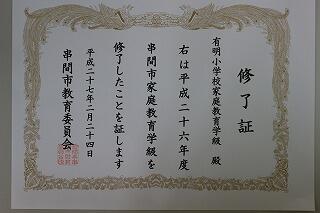 修了証
有明小学校家庭教育学級 殿
右は平成二十六年度
串間市家庭教育学級を
修了したことを証します
平成二十七年二月二十四日
串間市教育委員会